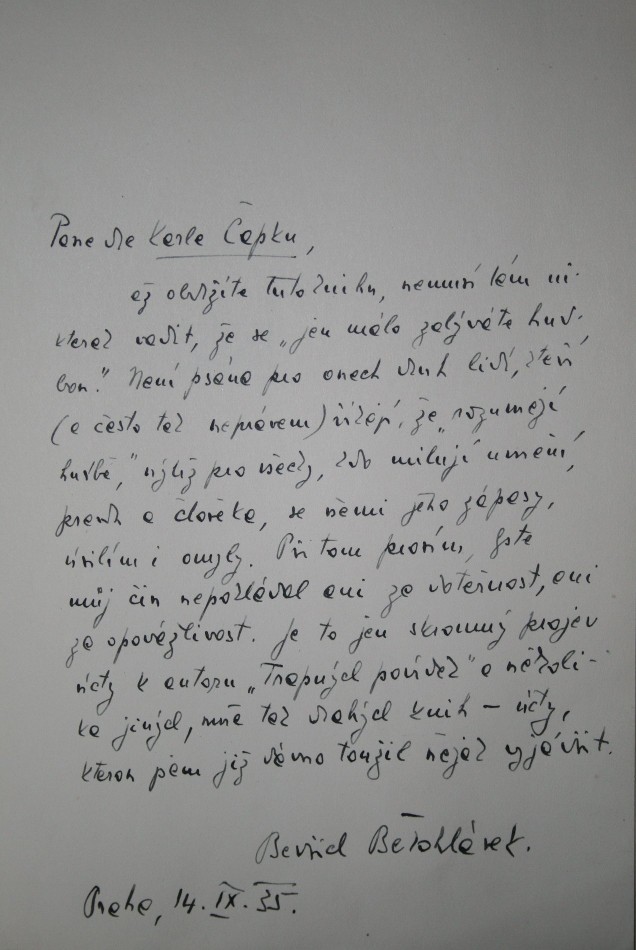 Pane dre Karle Čapku,
až obdržíte tuto knihu, nemusí Vám ni-
kterak vadit, že se „jen málo zabýváte hud-
bou.“ Není psána pro onech druh lidí, kteří
(a často též neprávem) říkají, že „rozumějí
hudbě,“ nýbrž pro všecky, kdo milují umění,
pravdu a člověka, se všemi jeho zápasy,
úsilím i omyly. Při tom prosím, byste
můj čin nepokládal ani za vtěrnost, ani
za opovážlivost. Je to jen skromný projev
úcty k autoru „Trapných povídek“ a několi-
ka jiných, mně též drahých knih – úcty,
kterou jsem již dávno toužil nějak vyjádřit.
Bervid Bělohlávek.
Praha, 14. IX. 35.